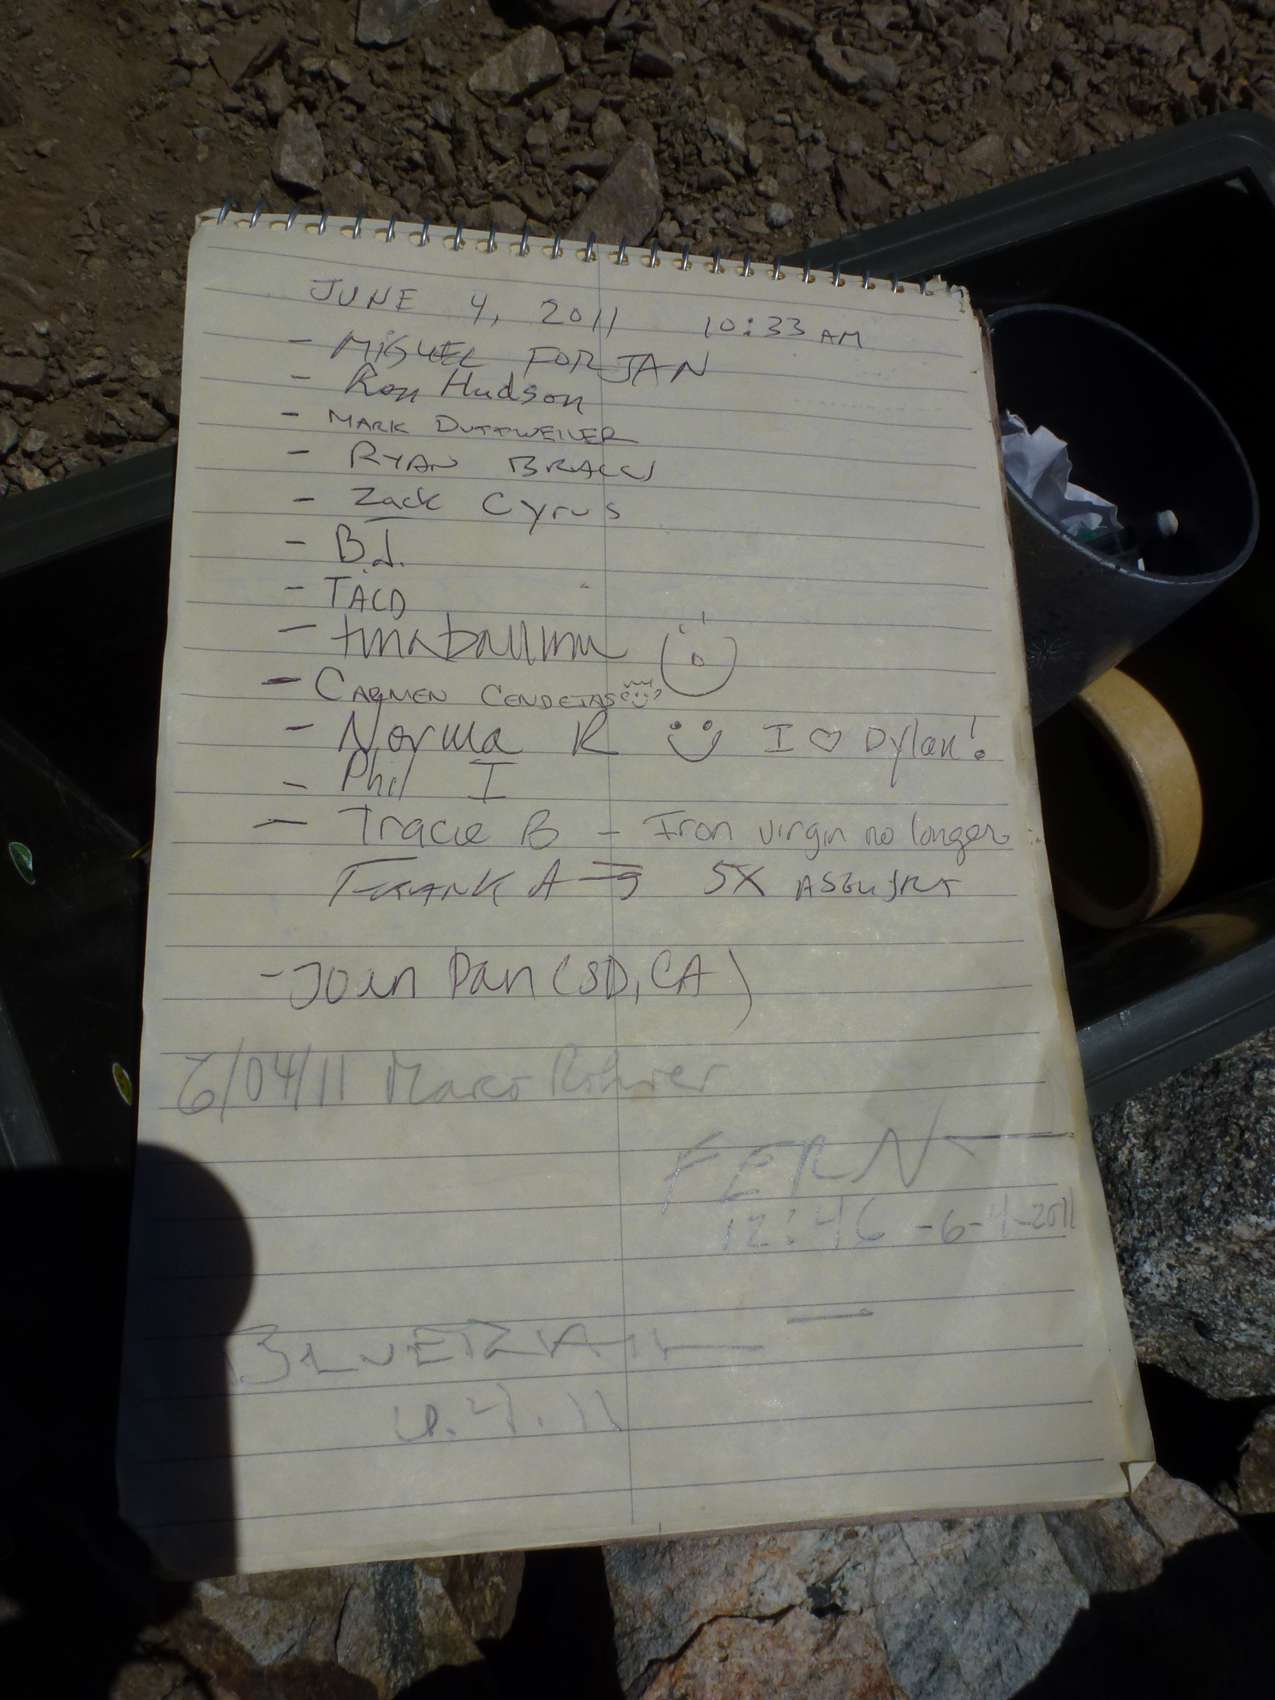 JUNE 4, 2011 10:33 AM
- MIGUEL FORJAN
- Ron Hudson
- MARK DUTTWEILER
- RYAN
- Zack Cyrus
- B.J.
- TACO
-
- CARMEN CENDEJAS
- Norma R I ♡ Dylan!
- Phil I
- Tracie B - Iron virgin no longer
FRANK A 5X
- Joan Pan (SD, CA)
6/04/11 Marco
FERN
12:46 -6-4-2011
6.4.11